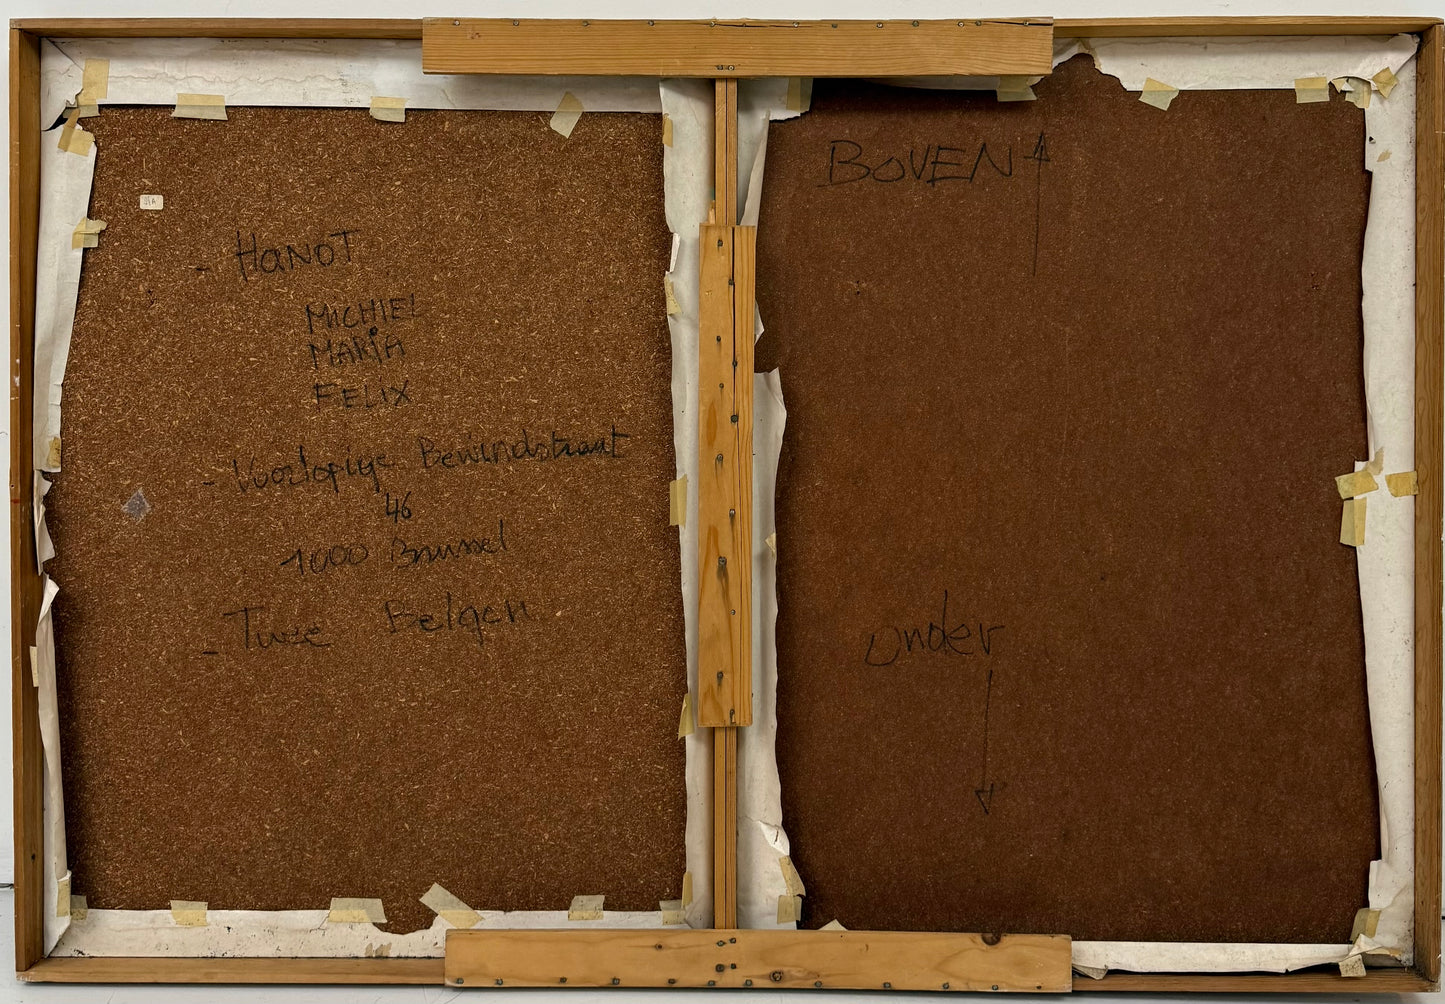 - HANOT
MICHIEL
MARiA
FELIX
- Voorlopige Bewindstraat
46
1000 Brussel
- Twee Belgen
BOVEN
onder